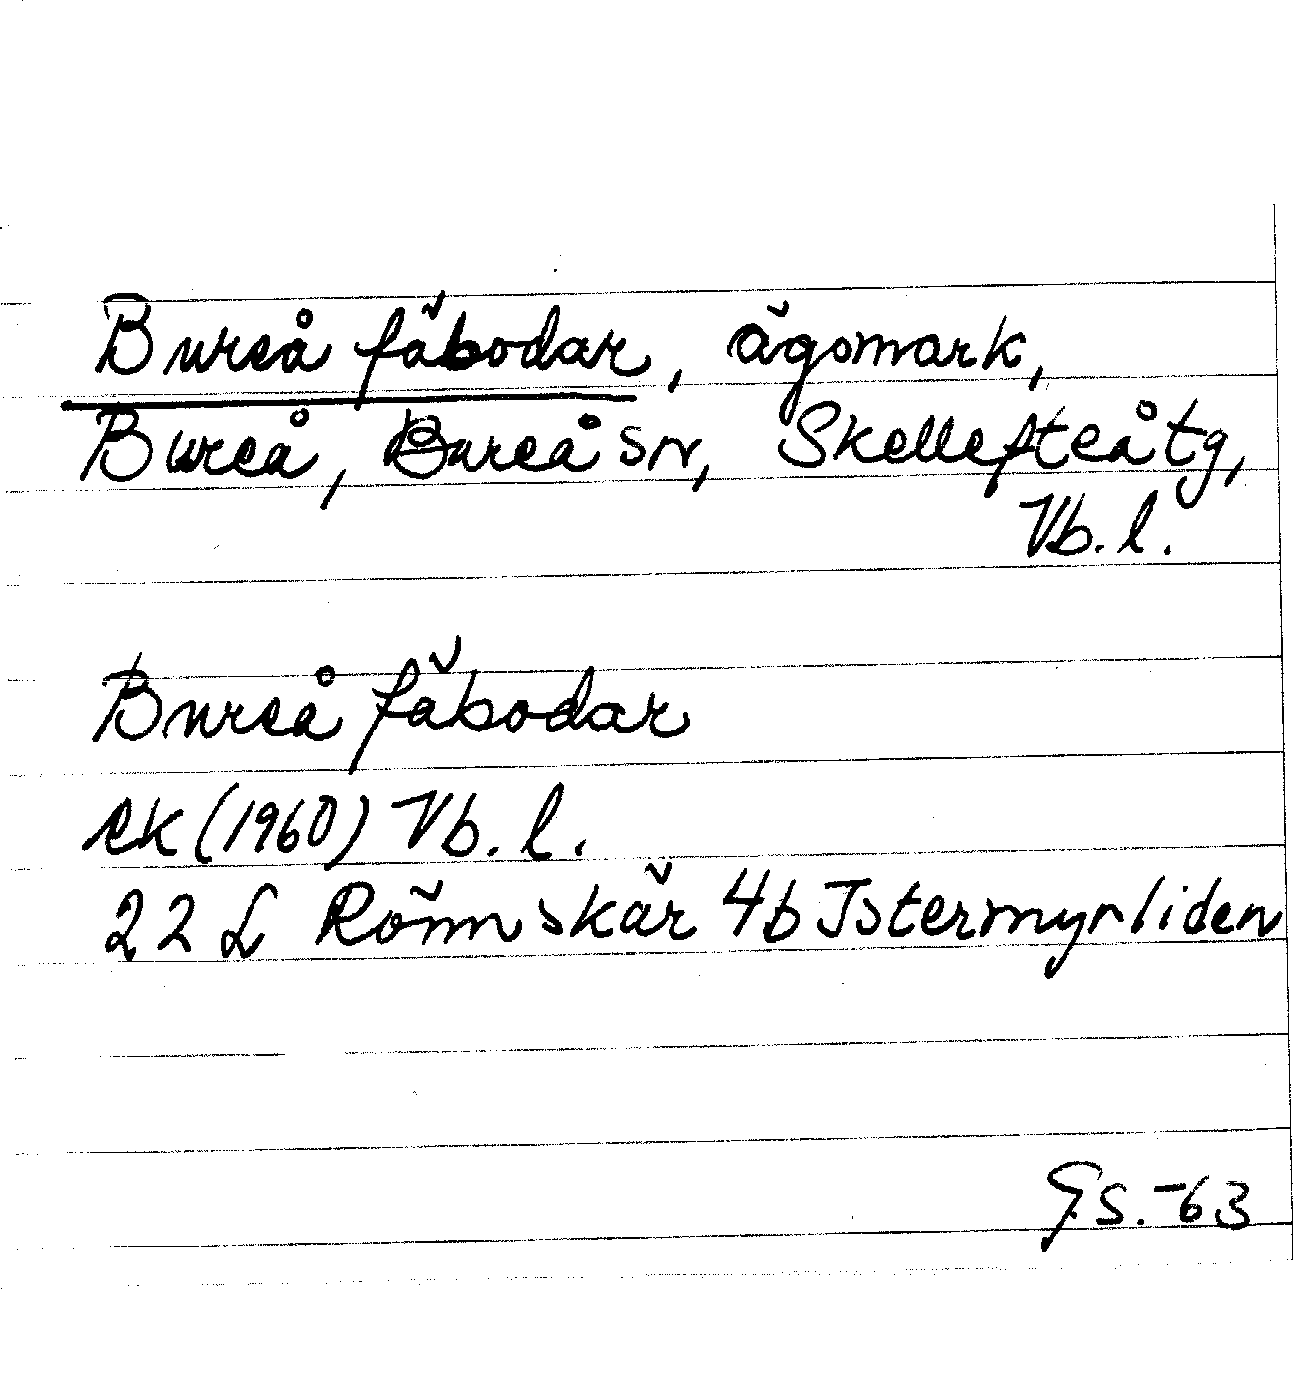 Bureå fäbodar, ägomark,
Bureå, Bureå sn, Skellefteå tg,
Vb. l.
Bureå fäbodar
ek (1960) Vb. l.
22 L Rönnskär 4b Istermyrliden
G.S. -63